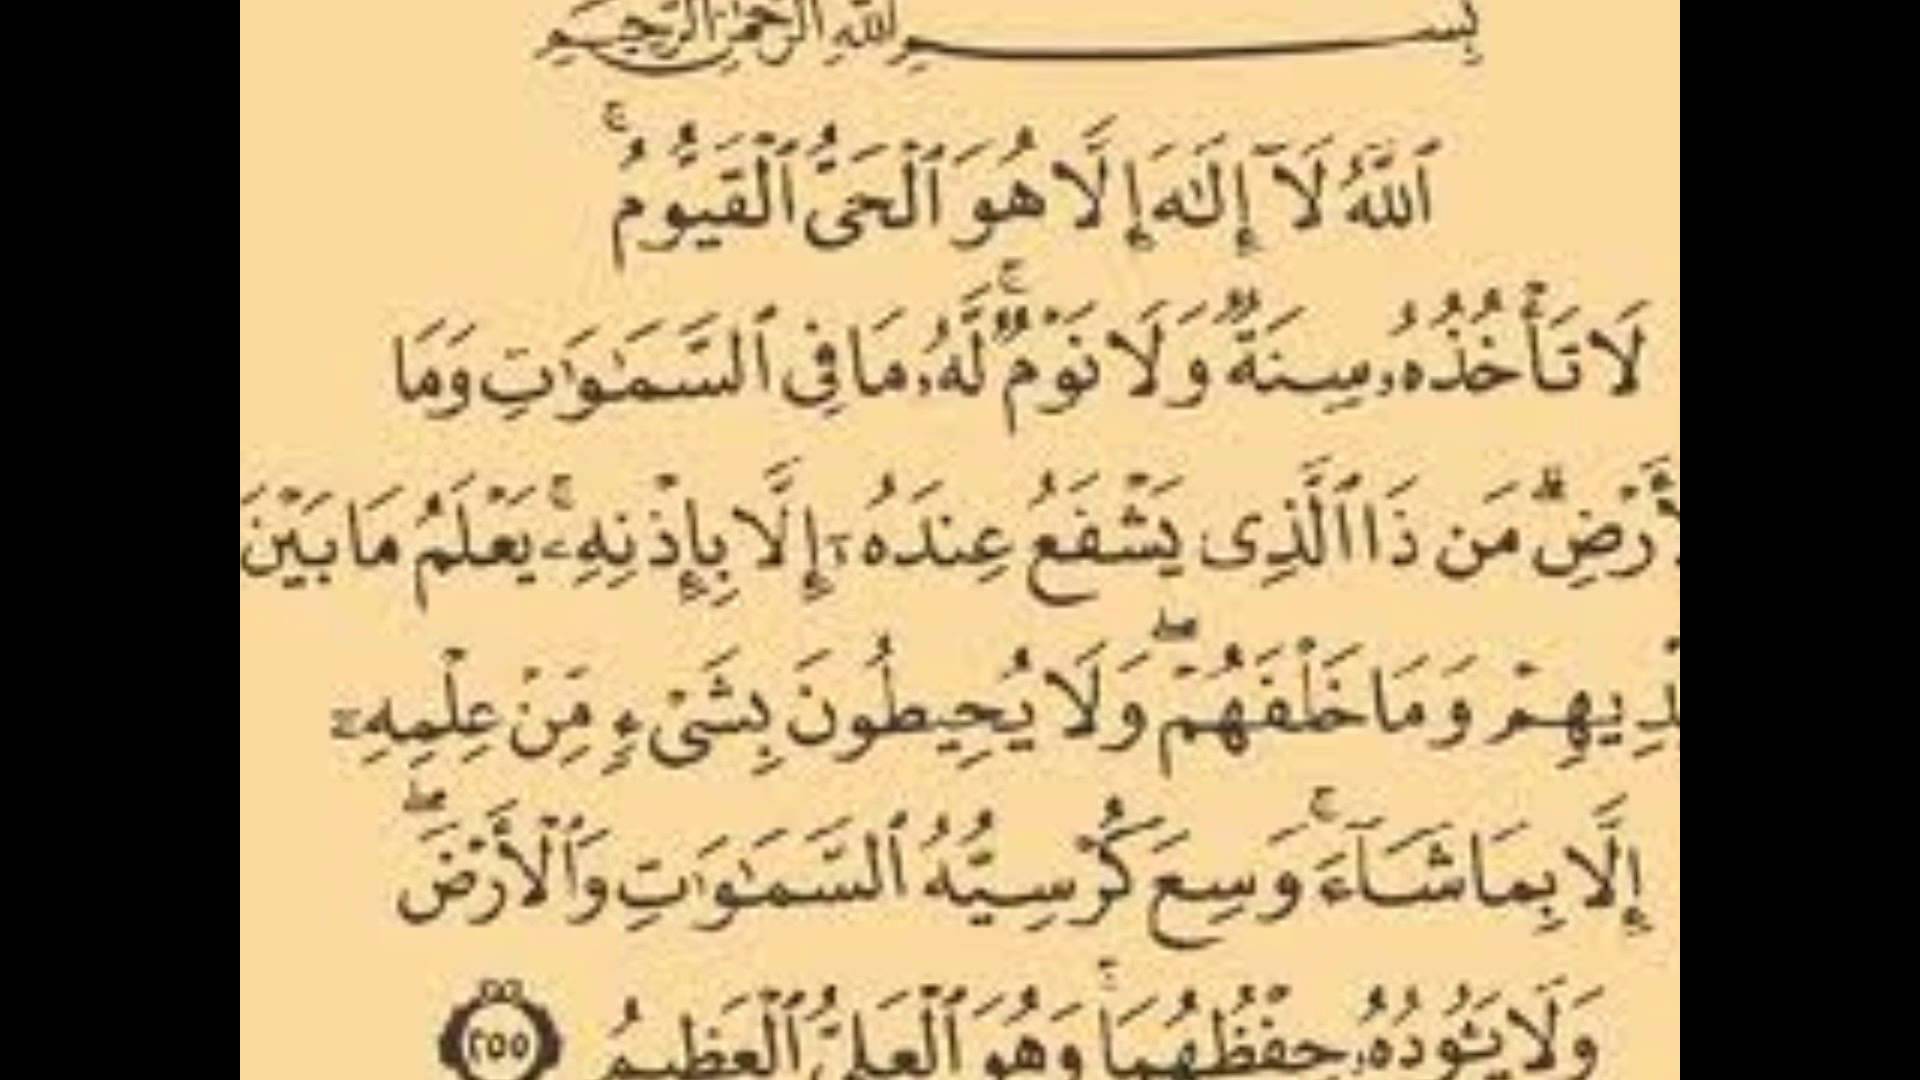 بِسْمِ اللَّهِ الرَّحْمَٰنِ الرَّحِيمِ
ٱللَّهُ لَآ إِلَٰهَ إِلَّا هُوَ ٱلْحَىُّ ٱلْقَيُّومُ ۚ
لَا تَأْخُذُهُۥ سِنَةٌ وَلَا نَوْمٌ ۚ لَّهُۥ مَا فِى ٱلسَّمَٰوَٰتِ وَمَا
لْأَرْضِ ۗ مَن ذَا ٱلَّذِى يَشْفَعُ عِندَهُۥٓ إِلَّا بِإِذْنِهِۦ ۚ يَعْلَمُ مَا بَيْنَ
يْدِيهِمْ وَمَا خَلْفَهُمْ ۖ وَلَا يُحِيطُونَ بِشَىْءٍ مِّنْ عِلْمِهِۦٓ
إِلَّا بِمَا شَآءَ ۚ وَسِعَ كُرْسِيُّهُ ٱلسَّمَٰوَٰتِ وَٱلْأَرْضَ ۖ
وَلَا يَـُٔودُهُۥ حِفْظُهُمَا ۚ وَهُوَ ٱلْعَلِىُّ ٱلْعَظِيمُ ٢٥٥